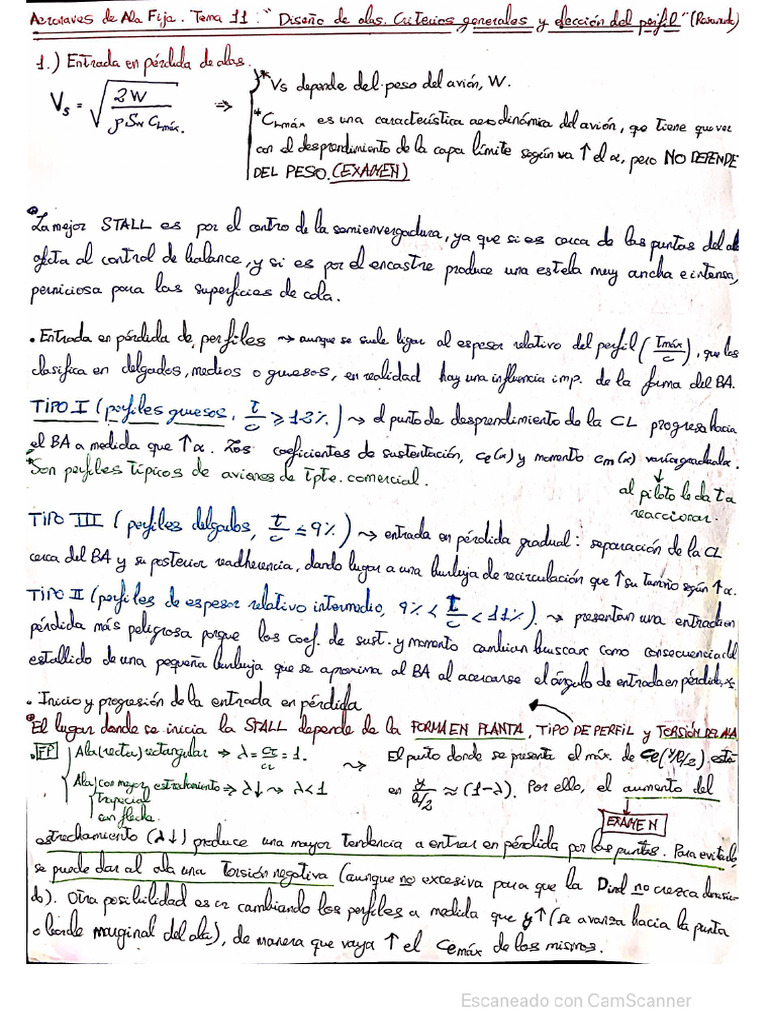 Aeronaves de Ala Fija. Tema 11: "Diseño de alas. Criterios generales y elección del perfil" (Resumen)
1.) Entrada en pérdida de alas.
Vs = √(2W / ρ Sw CLmáx.) ⇒
* Vs depende del peso del avión, W.
* CLmáx es una característica aerodinámica del avión, que tiene que ver
con el desprendimiento de la capa límite según va ↑ el α, pero NO DEPENDE
DEL PESO. (EXAMEN)
* La mejor STALL es por el centro de la semienvergadura, ya que si es cerca de las puntas del ala
afecta al control de balance, y si es por el encastre produce una estela muy ancha e intensa,
perniciosa para las superficies de cola.
• Entrada en pérdida de perfiles ⇝ aunque se suele ligar al espesor relativo del perfil (tmáx/c), que los
clasifica en delgados, medios o gruesos, en realidad hay una influencia imp. de la forma del BA.
TIPO I (perfiles gruesos, t/c ≥ 12%) ⇝ el punto de desprendimiento de la CL progresa hacia
el BA a medida que ↑ α. Los coeficientes de sustentación, ce(α) y momento cm(α) varían gradualm.
* Son perfiles típicos de aviones de Tpte. comercial.
↓
al piloto le da ta
reaccionar.
TIPO III (perfiles delgados, t/c ≤ 9%) ⇝ entrada en pérdida gradual: separación de la CL
cerca del BA y su posterior readherencia, dando lugar a una burbuja de recirculación que ↑ su tamaño según ↑ α.
TIPO II (perfiles de espesor relativo intermedio, 9% < t/c < 11%). ⇝ presentan una entrada en
pérdida más peligrosa porque los coef. de sust. y momento cambian bruscam como consecuencia del
estallido de una pequeña burbuja que se aproxima al BA al acercarse el ángulo de entrada en pérdida,
• Inicio y progresión de la entrada en pérdida
* El lugar donde se inicia la STALL depende de la FORMA EN PLANTA, TIPO DE PERFIL y TORSIÓN DEL ALA
• FP
Ala (recta) rectangular ⇒ λ = ct/cr = 1.
Ala con mayor estrechamiento ⇒ λ↓ ⇝ λ<1
trapecial
con flecha.
⇝ El punto donde se presenta el máx. de ce(y/b/2). está
en y/b/2 ≈ (1-λ). Por ello, el aumento del
EXAMEN
estrechamiento (λ↓) produce una mayor tendencia a entrar en pérdida por las puntas. Para evitarlo,
se puede dar al ala una torsión negativa (aunque no excesiva para que la Dind no crezca demasia-
do). Otra posibilidad es ir cambiando los perfiles a medida que y↑ (se avanza hacia la punta
o borde marginal del ala), de manera que vaya ↑ el cemáx de los mismos.
Escaneado con CamScanner